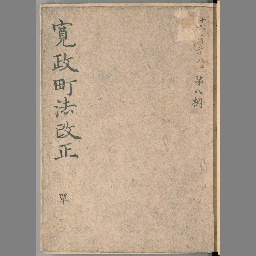 寛政町法改正
単
第八棚